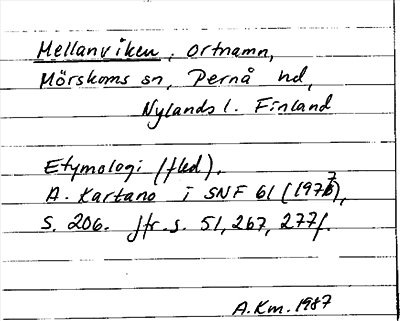 Mellanviken, ortnamn,
Mörskoms sn, Pernå hd,
Nylands l. Finland
Etymologi (fled).
A. Kartano i SNF 61 (1977),
S. 206. Jfr. s. 51, 267, 277f.
A.Km. 1987